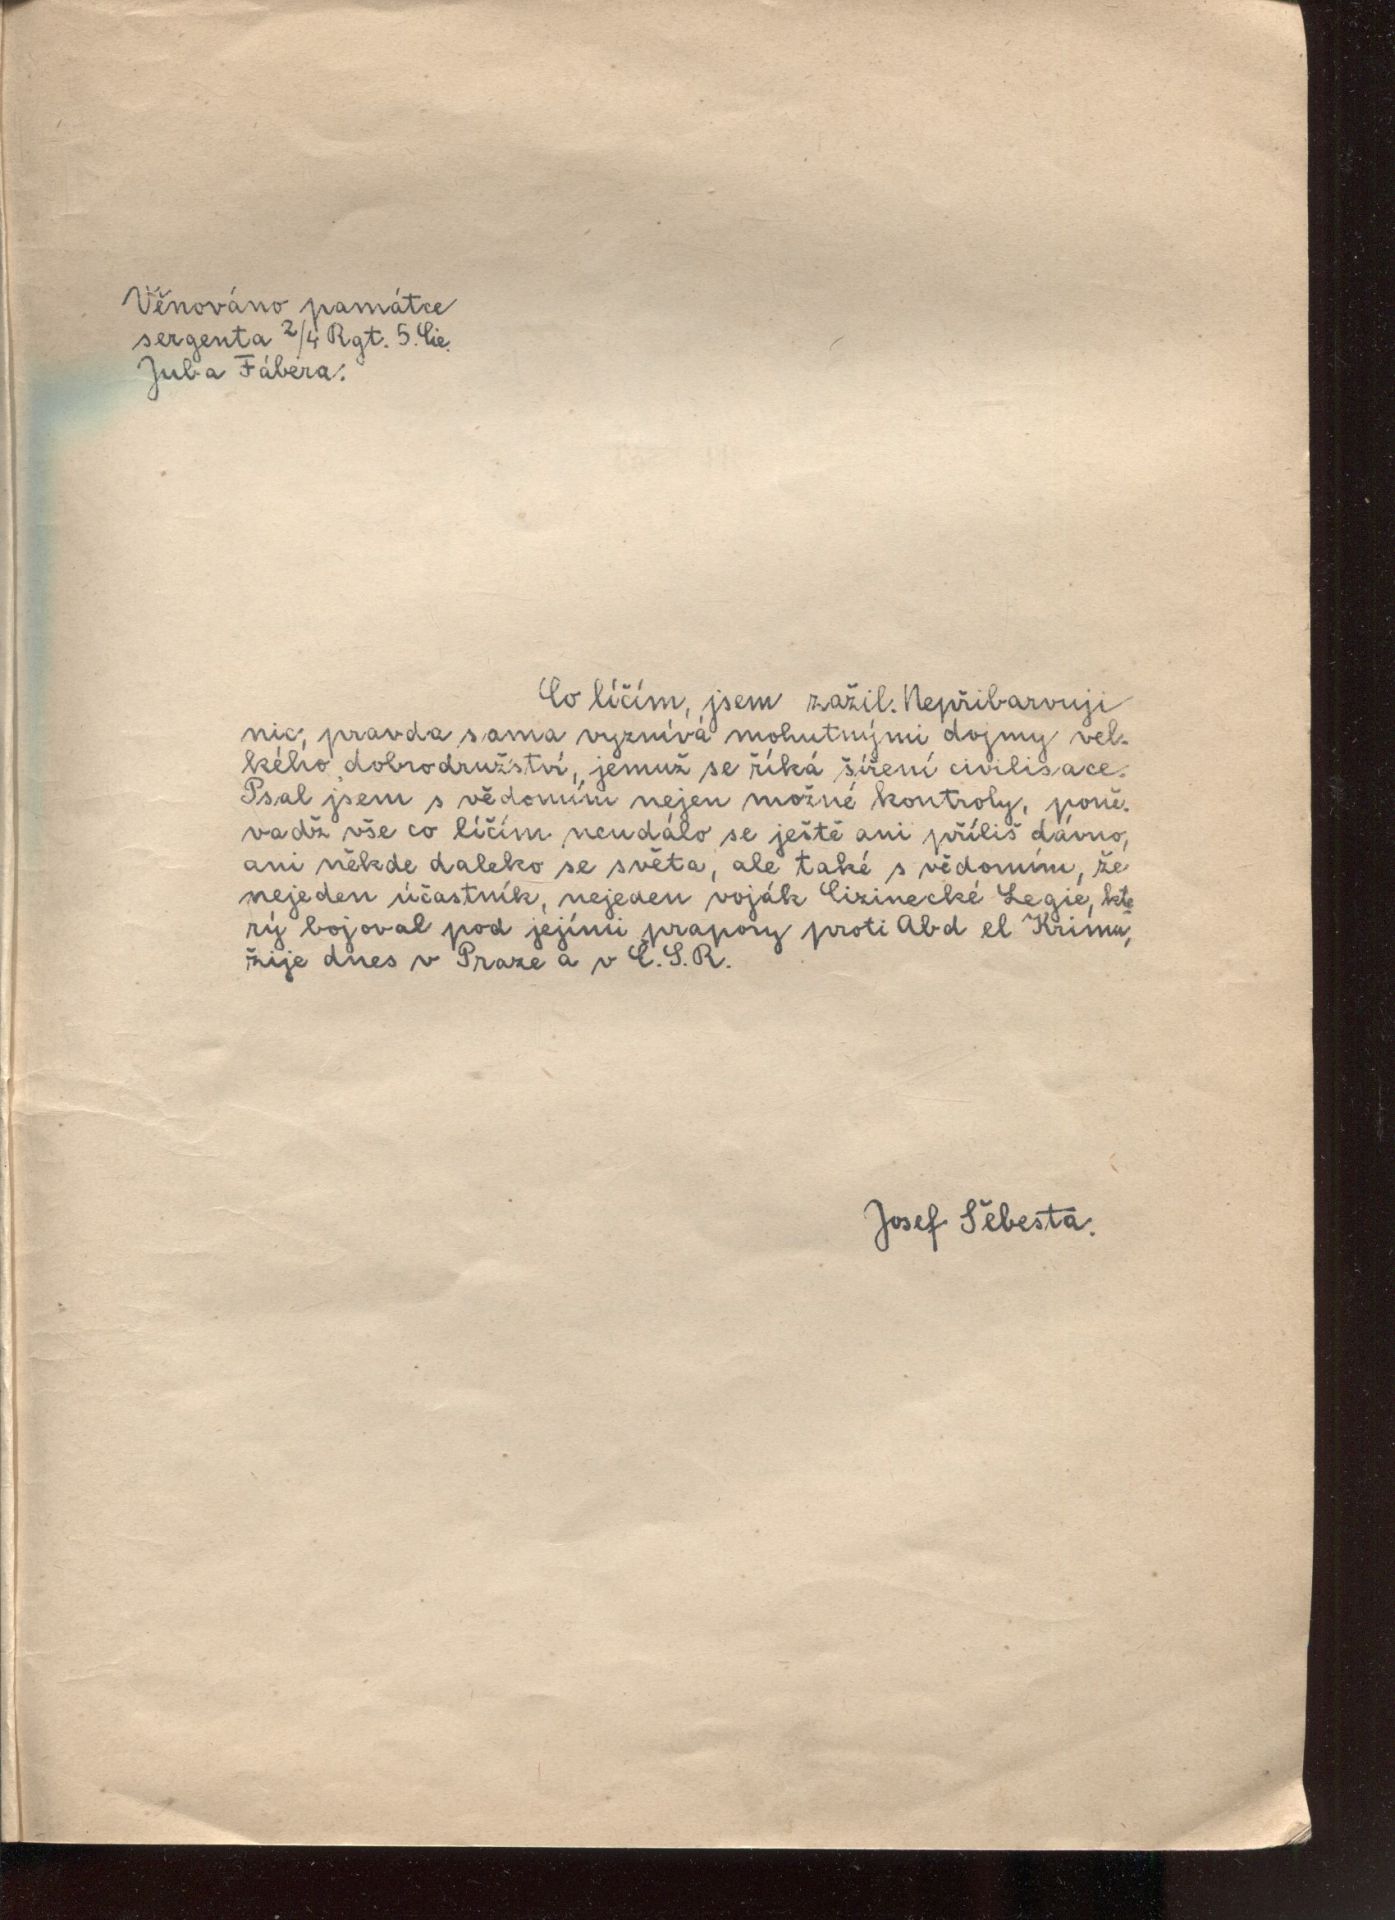 Věnováno památce
sergenta 2/4 Rgt. 5. Cie.
Juba Fábera.
Co líčím, jsem zažil. Nepřibarvuji
nic, pravda sama vyznívá mohutnými dojmy vel-
kého dobrodružství, jemuž se říká šíření civilisace.
Psal jsem s vědomím nejen možné kontroly, poně-
vadž vše co líčím neudálo se ještě ani příliš dávno,
ani někde daleko se světa, ale také s vědomím, že
nejeden účastník, nejeden voják Cizinecké Legie, kte
rý bojoval pod jejími prapory proti Abd el Krimu,
žije dnes v Praze a v Č.S.R.
Josef Šebesta.